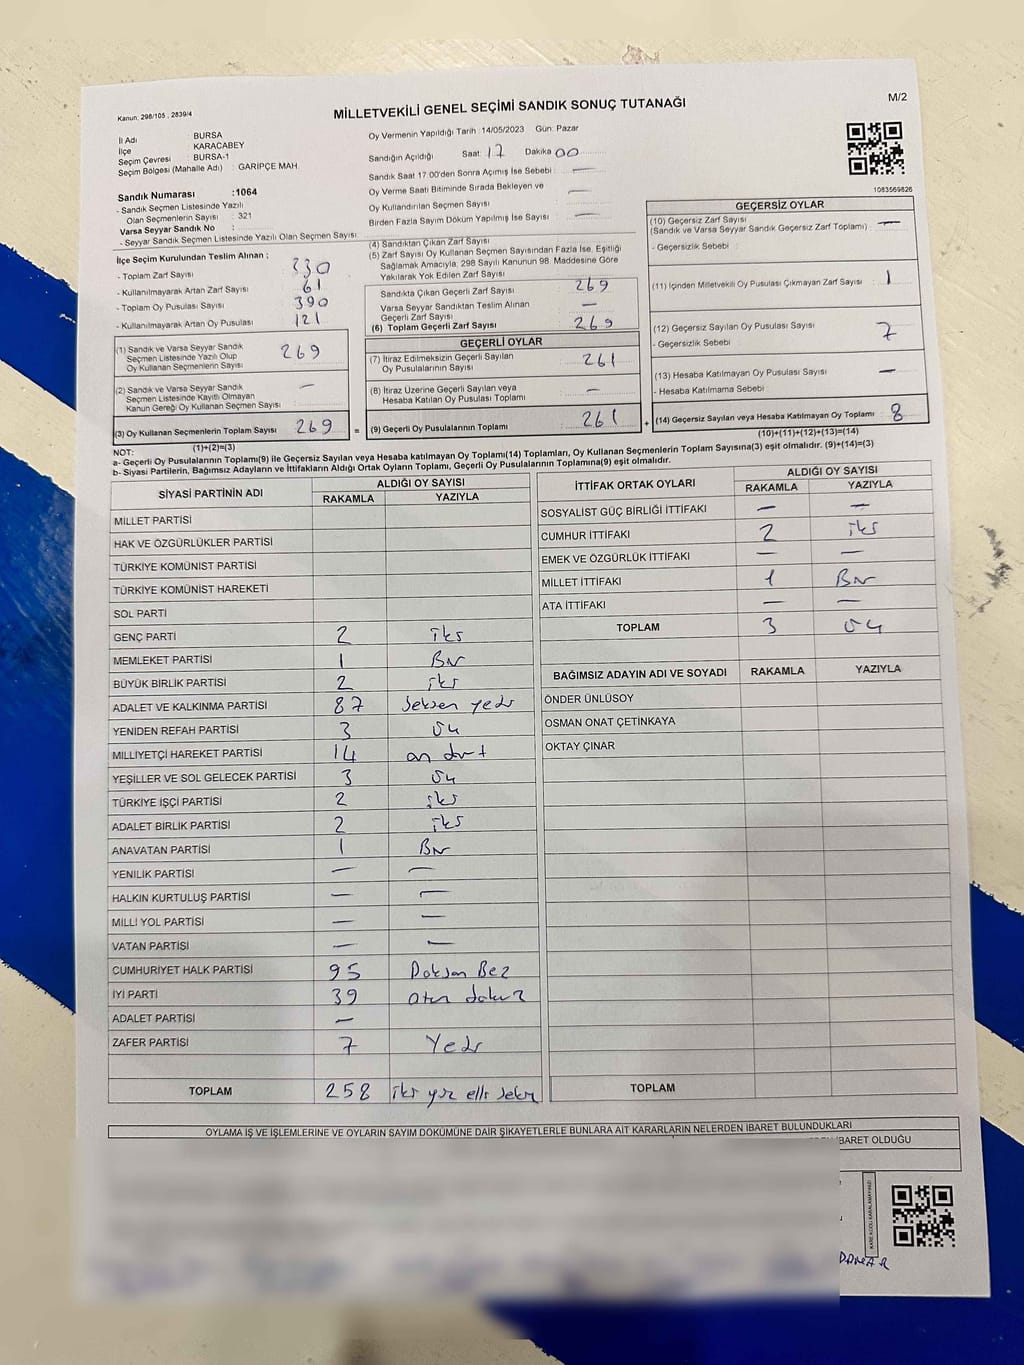 Kanun: 298/105 ; 2839/4
MİLLETVEKİLİ GENEL SEÇİMİ SANDIK SONUÇ TUTANAĞI
M/2
İl Adı : BURSA
İlçe : KARACABEY
Seçim Çevresi : BURSA-1
Seçim Bölgesi (Mahalle Adı) : GARİPÇE MAH.
Sandık Numarası :1064
- Sandık Seçmen Listesinde Yazılı
Olan Seçmenlerin Sayısı : 321
Varsa Seyyar Sandık No :
- Seyyar Sandık Seçmen Listesinde Yazılı Olan Seçmen Sayısı:
Oy Vermenin Yapıldığı Tarih :14/05/2023 Gün: Pazar
Sandığın Açıldığı Saat: 17 Dakika 00
Sandık Saat 17:00'den Sonra Açımış İse Sebebi : —
Oy Verme Saati Bitiminde Sırada Bekleyen ve
Oy Kullandırılan Seçmen Sayısı : —
Birden Fazla Sayım Döküm Yapılmış İse Sayısı : —
1083569826
İlçe Seçim Kurulundan Teslim Alınan ;
- Toplam Zarf Sayısı : 330
- Kullanılmayarak Artan Zarf Sayısı : 61
- Toplam Oy Pusulası Sayısı : 390
- Kullanılmayarak Artan Oy Pusulası : 121
(1) Sandık ve Varsa Seyyar Sandık
Seçmen Listesinde Yazılı Olup
Oy Kullanan Seçmenlerin Sayısı : 269
(2) Sandık ve Varsa Seyyar Sandık
Seçmen Listesinde Kayıtlı Olmayan
Kanun Gereği Oy Kullanan Seçmen Sayısı : —
(3) Oy Kullanan Seçmenlerin Toplam Sayısı : 269
(1)+(2)=(3)
(4) Sandıktan Çıkan Zarf Sayısı
(5) Zarf Sayısı Oy Kullanan Seçmen Sayısından Fazla İse, Eşitliği
Sağlamak Amacıyla, 298 Sayılı Kanunun 98. Maddesine Göre
Yakılarak Yok Edilen Zarf Sayısı
Sandıkta Çıkan Geçerli Zarf Sayısı : 269
Varsa Seyyar Sandıktan Teslim Alınan
Geçerli Zarf Sayısı : —
(6) Toplam Geçerli Zarf Sayısı : 269
GEÇERLİ OYLAR
(7) İtiraz Edilmeksizin Geçerli Sayılan
Oy Pusulalarının Sayısı : 261
(8) İtiraz Üzerine Geçerli Sayılan veya
Hesaba Katılan Oy Pusulası Toplamı : —
= (9) Geçerli Oy Pusulalarının Toplamı : 261 +
GEÇERSİZ OYLAR
(10) Geçersiz Zarf Sayısı
(Sandık ve Varsa Seyyar Sandık Geçersiz Zarf Toplamı) : —
- Geçersizlik Sebebi :
(11) İçinden Milletvekili Oy Pusulası Çıkmayan Zarf Sayısı : 1
(12) Geçersiz Sayılan Oy Pusulası Sayısı : 7
- Geçersizlik Sebebi :
(13) Hesaba Katılmayan Oy Pusulası Sayısı : —
- Hesaba Katılmama Sebebi :
(14) Geçersiz Sayılan veya Hesaba Katılmayan Oy Toplamı : 8
(10)+(11)+(12)+(13)=(14)
NOT:
a- Geçerli Oy Pusulalarının Toplamı(9) ile Geçersiz Sayılan veya Hesaba katılmayan Oy Toplamı(14) Toplamları, Oy Kullanan Seçmenlerin Toplam Sayısına(3) eşit olmalıdır. (9)+(14)=(3)
b- Siyasi Partilerin, Bağımsız Adayların ve İttifakların Aldığı Ortak Oyların Toplamı, Geçerli Oy Pusulalarının Toplamına(9) eşit olmalıdır.
SİYASİ PARTİNİN ADI
ALDIĞI OY SAYISI
RAKAMLA YAZIYLA
MİLLET PARTİSİ
HAK VE ÖZGÜRLÜKLER PARTİSİ
TÜRKİYE KOMÜNİST PARTİSİ
TÜRKİYE KOMÜNİST HAREKETİ
SOL PARTİ
GENÇ PARTİ 2 iki
MEMLEKET PARTİSİ 1 Bir
BÜYÜK BİRLİK PARTİSİ 2 iki
ADALET VE KALKINMA PARTİSİ 87 seksen yedi
YENİDEN REFAH PARTİSİ 3 üç
MİLLİYETÇİ HAREKET PARTİSİ 14 on dört
YEŞİLLER VE SOL GELECEK PARTİSİ 3 üç
TÜRKİYE İŞÇİ PARTİSİ 2 iki
ADALET BİRLİK PARTİSİ 2 iki
ANAVATAN PARTİSİ 1 Bir
YENİLİK PARTİSİ — —
HALKIN KURTULUŞ PARTİSİ — —
MİLLİ YOL PARTİSİ — —
VATAN PARTİSİ — —
CUMHURİYET HALK PARTİSİ 95 Doksan Beş
İYİ PARTİ 39 otuz dokuz
ADALET PARTİSİ —
ZAFER PARTİSİ 7 Yedi
TOPLAM 258 iki yüz elli sekiz
İTTİFAK ORTAK OYLARI
ALDIĞI OY SAYISI
RAKAMLA YAZIYLA
SOSYALİST GÜÇ BİRLİĞİ İTTİFAKI — —
CUMHUR İTTİFAKI 2 iki
EMEK VE ÖZGÜRLÜK İTTİFAKI — —
MİLLET İTTİFAKI 1 Bir
ATA İTTİFAKI — —
TOPLAM 3 üç
BAĞIMSIZ ADAYIN ADI VE SOYADI RAKAMLA YAZIYLA
ÖNDER ÜNLÜSOY
OSMAN ONAT ÇETİNKAYA
OKTAY ÇINAR
TOPLAM
OYLAMA İŞ VE İŞLEMLERİNE VE OYLARIN SAYIM DÖKÜMÜNE DAİR ŞİKAYETLERLE BUNLARA AİT KARARLARIN NELERDEN İBARET BULUNDUKLARI
İBARET OLDUĞU
KARE KODU KARALAMAYINIZ!